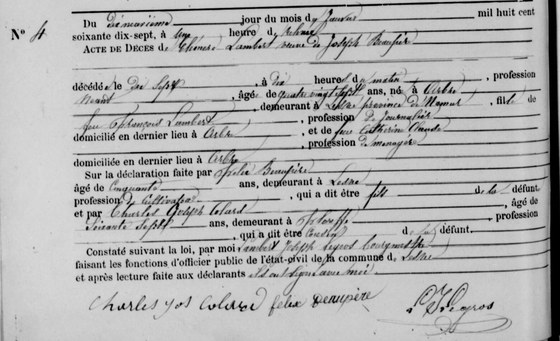 N° 4
Du dix neuvième jour du mois de Janvier mil huit cent
soixante dix-sept, à une heure de relevée
ACTE DE DÉCÈS de Lambert veuve de Joseph Beaupère
décédé le dix sept, à dix heures du matin, profession
Néant, âgé de quatre vingt sept ans, né à Arbre
, demeurant à Lesve province de Namur, fille de
feu François Lambert, profession de journalier
domicilié en dernier lieu à Arbre et de feue Catherine
, profession de ménagère
domiciliée en dernier lieu à Arbre
Sur la déclaration faite par Félix Beaupère
âgé de cinquante ans, demeurant à Lesve
profession de cultivateur, qui a dit être fils de la défunt.
et par Charles Joseph Colard, âgé de
soixante sept ans, demeurant à, profession
, qui a dit être cousin de la défunt.
Constaté suivant la loi, par moi Lambert Joseph Legros bourgmestre
faisant les fonctions d'officier public de l'état-civil de la commune de Lesve
et après lecture faite aux déclarants ils ont signé avec moi
Charles Jos Colard felix Beaupère
L J Legros